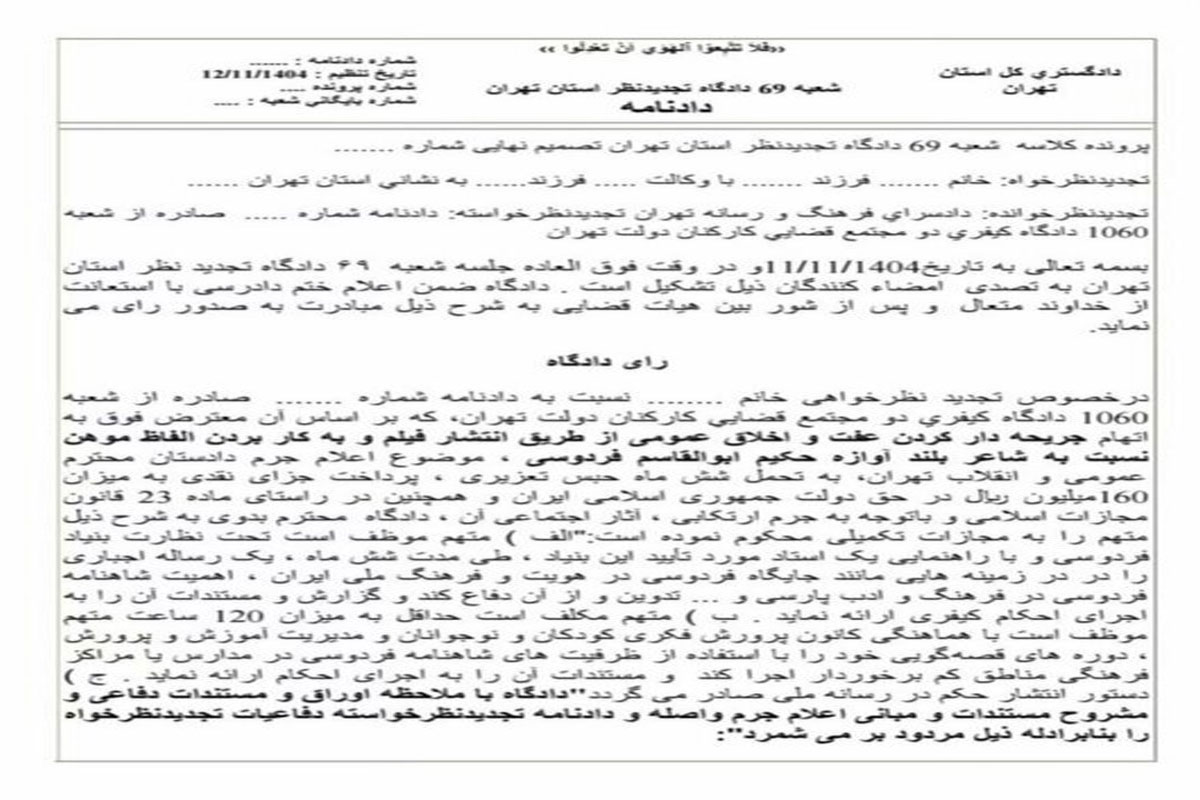 «فلا تتبعوا الهوی ان تعدلوا»
دادگستری کل استان تهران
شعبه 69 دادگاه تجدیدنظر استان تهران
دادنامه
شماره دادنامه : ......
تاریخ تنظیم : 12/11/1404
شماره پرونده ....
شماره بایگانی شعبه : ....
پرونده کلاسه شعبه 69 دادگاه تجدیدنظر استان تهران تصمیم نهایی شماره .......
تجدیدنظرخواه: خانم ....... فرزند ....... با وکالت ..... فرزند...... به نشانی استان تهران ......
تجدیدنظرخوانده: دادسراي فرهنگ و رسانه تهران تجدیدنظرخواسته: دادنامه شماره ..... صادره از شعبه
1060 دادگاه کیفري دو مجتمع قضایي کارکنان دولت تهران
بسمه تعالی به تاریخ11/11/1404و در وقت فوق العاده جلسه شعبه ۶۹ دادگاه تجدید نظر استان
تهران به تصدی امضاء کنندگان ذیل تشکیل است . دادگاه ضمن اعلام ختم دادرسی با استعانت
از خداوند متعال و پس از شور بین هیات قضایی به شرح ذیل مبادرت به صدور رای می
نماید.
رای دادگاه
درخصوص تجدید نظرخواهی خانم ........ نسبت به دادنامه شماره ....... صادره از شعبه
1060 دادگاه کیفري دو مجتمع قضایي کارکنان دولت تهران، که بر اساس آن معترض فوق به
اتهام جریحه دار کردن عفت و اخلاق عمومی از طریق انتشار فیلم و به کار بردن الفاظ موهن
نسبت به شاعر بلند آوازه حکیم ابوالقاسم فردوسی ، موضوع اعلام جرم دادستان محترم
عمومی و انقلاب تهران، به تحمل شش ماه حبس تعزیری ، پرداخت جزای نقدی به میزان
160میلیون ریال در حق دولت جمهوری اسلامی ایران و همچنین در راستای ماده 23 قانون
مجازات اسلامی و باتوجه به جرم ارتکابی ، آثار اجتماعی آن ، دادگاه محترم بدوی به شرح ذیل
متهم را به مجازات تکمیلی محکوم نموده است:"الف ) متهم موظف است تحت نظارت بنیاد
فردوسی و با راهنمایی یک استاد مورد تأیید این بنیاد ، طی مدت شش ماه ، یک رساله اجباری
را در در زمینه هایی مانند جایگاه فردوسی در هویت و فرهنگ ملی ایران ، اهمیت شاهنامه
فردوسی در فرهنگ و ادب پارسی و ... تدوین و از آن دفاع کند و گزارش و مستندات آن را به
اجرای احکام کیفری ارائه نماید . ب ) متهم مکلف است حداقل به میزان 120 ساعت متهم
موظف است با هماهنگی کانون پرورش فکری کودکان و نوجوانان و مدیریت آموزش و پرورش
، دوره های قصه‌گویی خود را با استفاده از ظرفیت های شاهنامه فردوسی در مدارس یا مراکز
فرهنگی مناطق کم برخوردار اجرا کند و مستندات آن را به اجرای احکام ارائه نماید . ج )
دستور انتشار حکم در رسانه ملی صادر می گردد"دادگاه با ملاحظه اوراق و مستندات دفاعی و
مشروح مستندات و مبانی اعلام جرم واصله و دادنامه تجدیدنظرخواسته دفاعیات تجدیدنظرخواه
را بنابرادله ذیل مردود بر می شمرد":